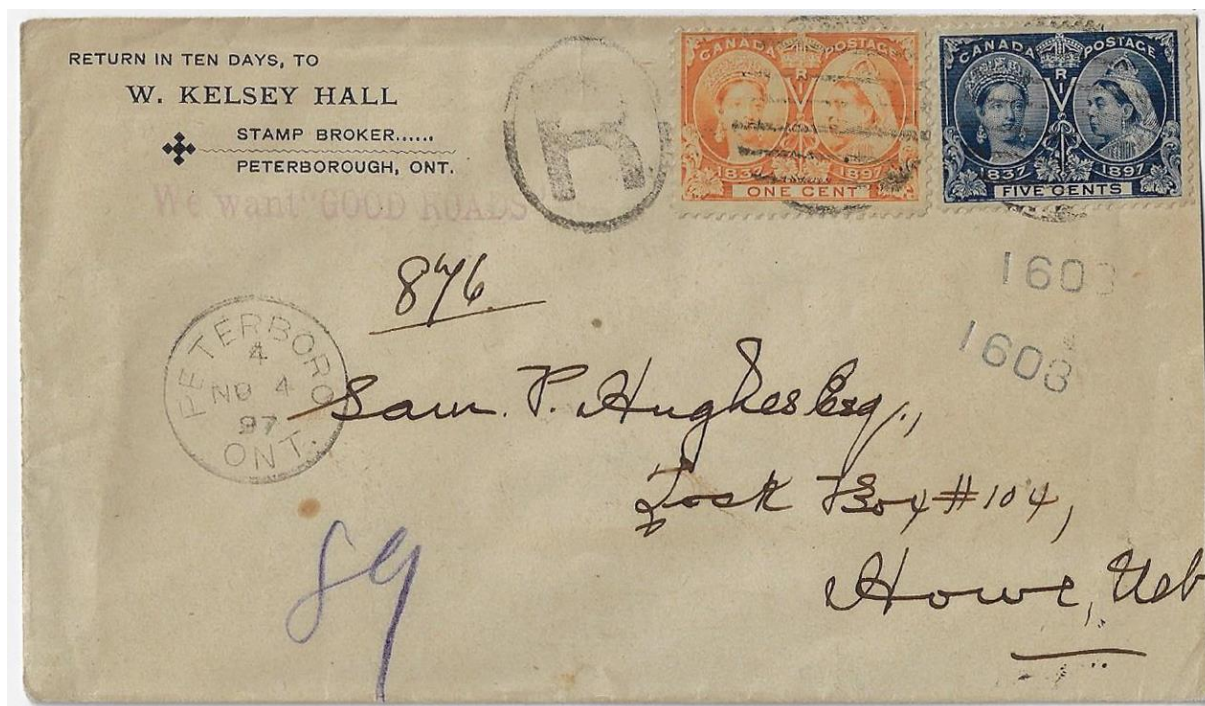 RETURN IN TEN DAYS, TO
W. KELSEY HALL
STAMP BROKER......
PETERBOROUGH, ONT.
We want "GOOD ROADS"
R
CANADA POSTAGE
V R I
1837 1897
ONE CENT
CANADA POSTAGE
V R I
1837 1897
FIVE CENTS
1603
1603
876
PETERBORO
4
NO 4
97
ONT.
Sam. P. Hughes Esq.,
Lock Box #104,
Howe, Neb
89